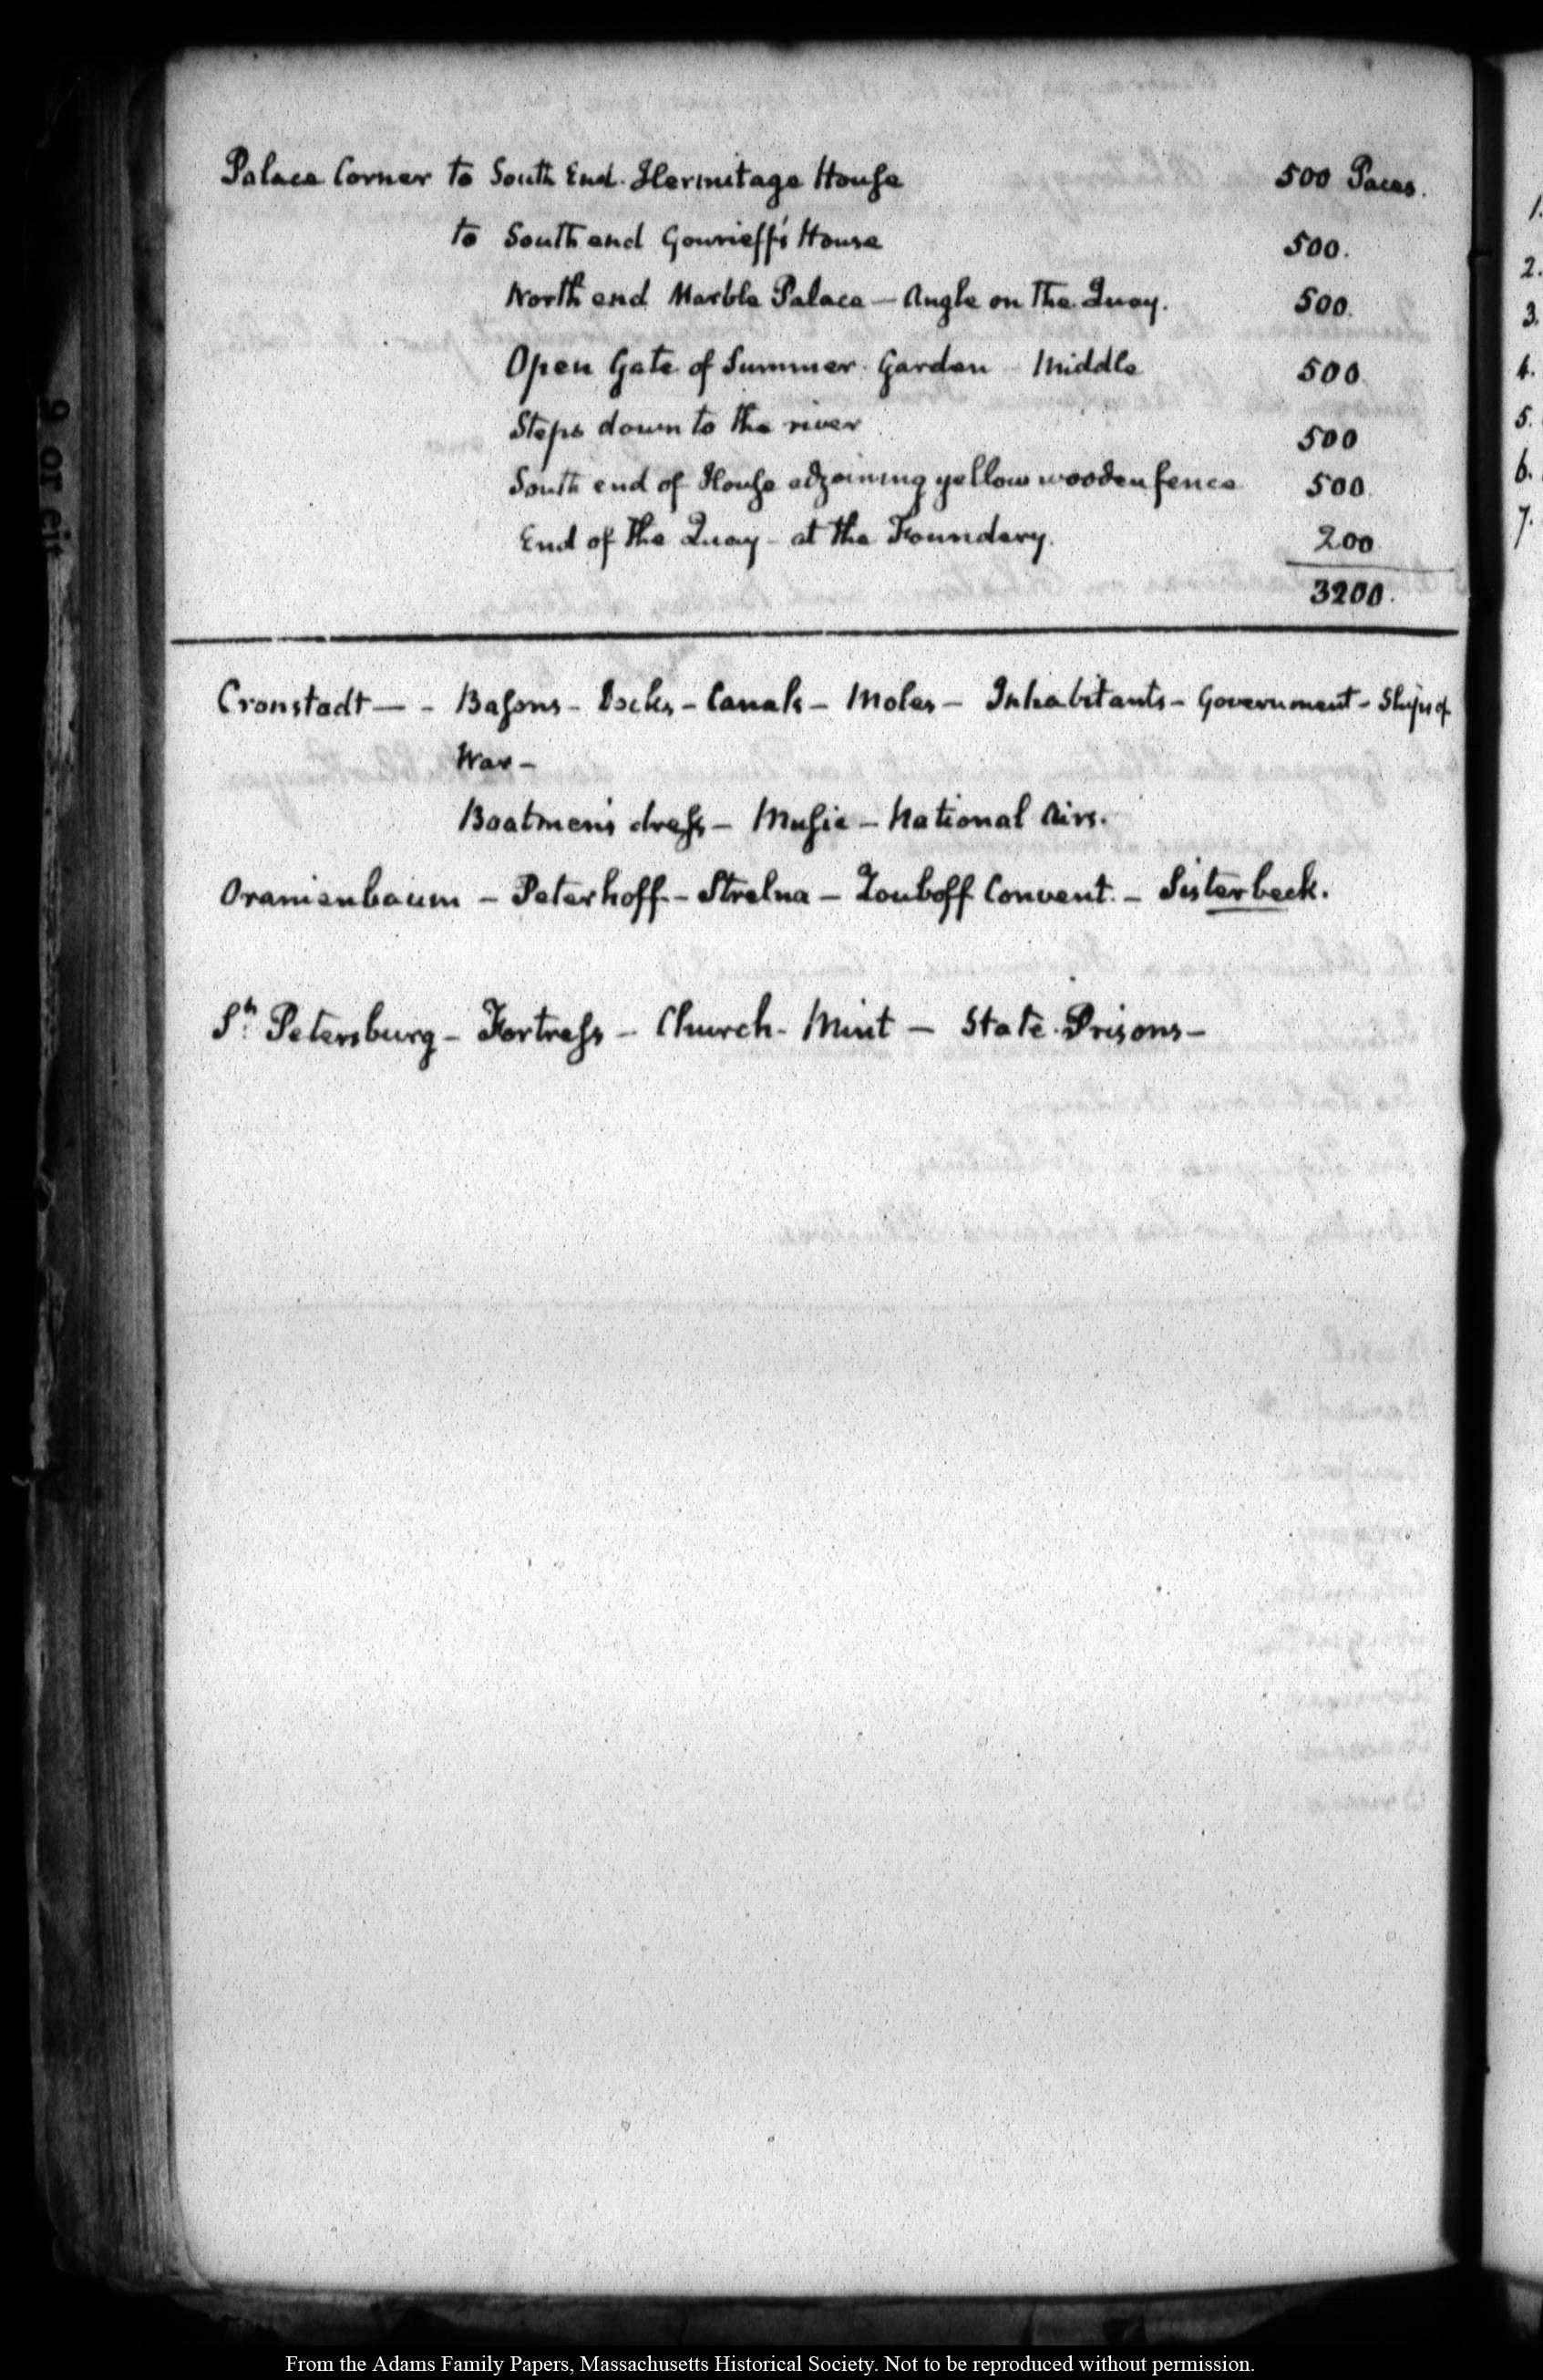 Palace Corner to South End. Hermitage House 500 Paces.
to South end Gourieff's House 500.
North end Marble Palace — Angle on the Quay. 500.
Open Gate of Summer Garden Middle 500
Steps down to the river 500
South end of House adjoining yellow wooden fence 500
End of the Quay - at the Foundery. 200
3200.
Cronstadt — - Basons - Docks - Canals - Moles - Inhabitants - Government - Ships of
War -
Boatmen's dress - Music - National Airs.
Oranienbaum - Peterhoff - Strelna - Zouboff Convent. - Sisterbeck.
St. Petersburg - Fortress - Church - Mint - State Prisons -
1.
2.
3.
4.
5.
6.
7.
From the Adams Family Papers, Massachusetts Historical Society. Not to be reproduced without permission.